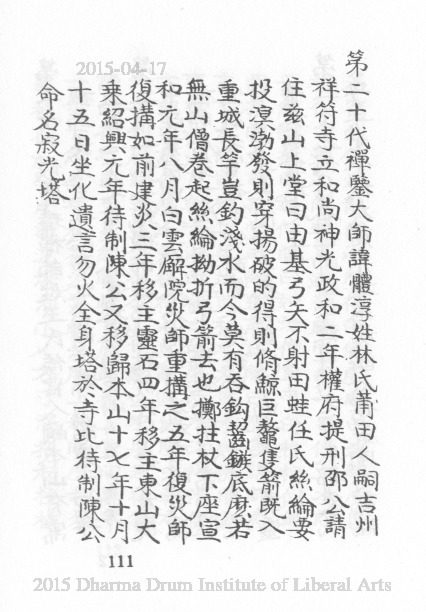 第二十代禪鑒大師諱體淳姓林氏莆田人嗣吉州
祥符寺立和尚神光政和二年權府提刑邵公請
住兹山上堂曰由基弓矢不射田蛙任氏絲綸要
投溟渤發則穿揚破的得則脩鯨巨鼇隻箭既入
重城長竿豈釣淺水而今莫有吞鈎齧鏃底麼若
無山僧卷起絲綸拗折弓箭去也擲拄杖下座宣
和元年八月白雲廨院災師重搆之五年復災師
復搆如前建炎三年移主靈石四年移主東山大
乘紹興元年待制陳公又移歸本山十七年十月
十五日坐化遺言勿火全身塔於寺比待制陳公
命名寂光塔
111
2015-04-17
2015 Dharma Drum Institute of Liberal Arts